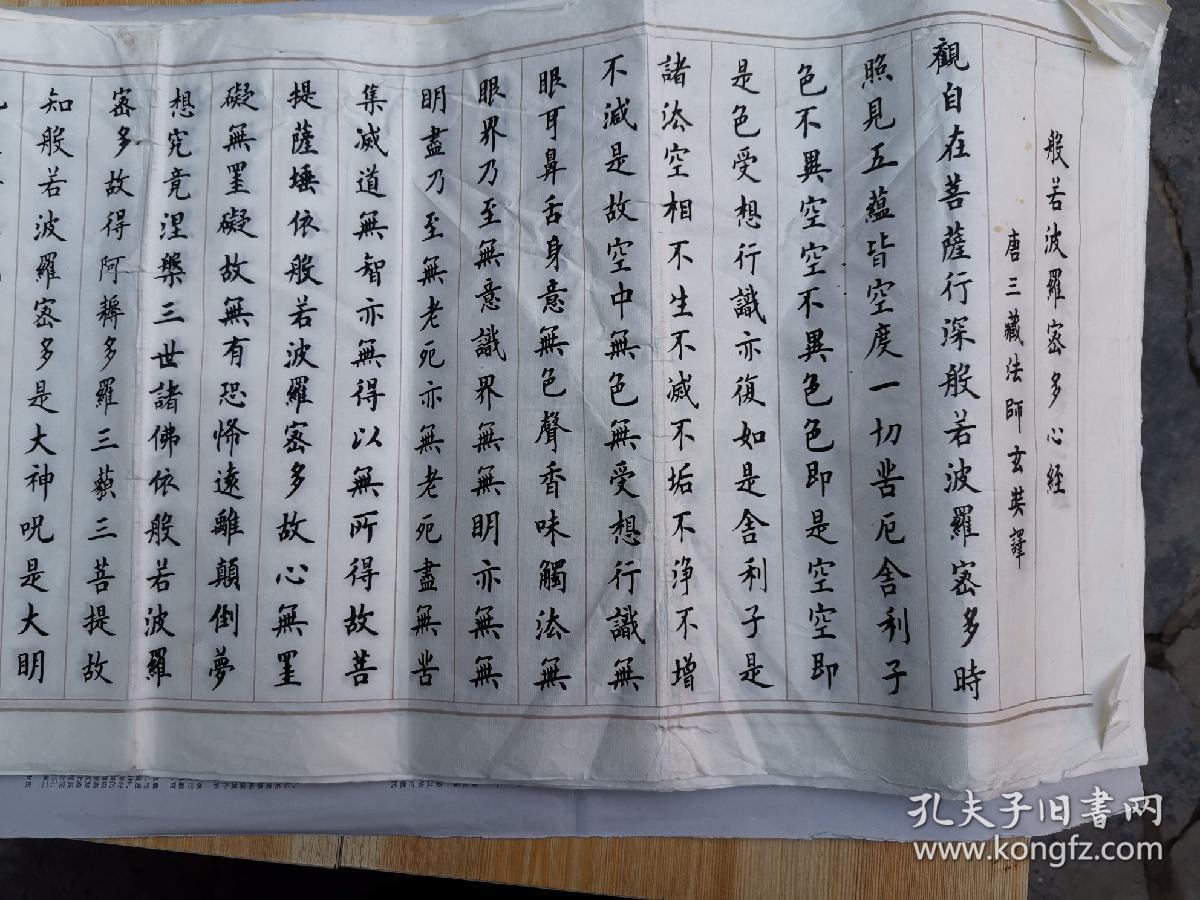 般若波羅密多心經
唐三藏法師玄奘譯
觀自在菩薩行深般若波羅密多時
照見五蘊皆空度一切苦厄舍利子
色不異空空不異色色即是空空即
是色受想行識亦復如是舍利子是
諸法空相不生不滅不垢不淨不增
不減是故空中無色無受想行識無
眼耳鼻舌身意無色聲香味觸法無
眼界乃至無意識界無無明亦無無
明盡乃至無老死亦無老死盡無苦
集滅道無智亦無得以無所得故菩
提薩埵依般若波羅密多故心無罣
礙無罣礙故無有恐怖遠離顛倒夢
想究竟涅槃三世諸佛依般若波羅
密多故得阿耨多羅三藐三菩提故
知般若波羅密多是大神呪是大明
孔夫子旧书网
www.kongfz.com